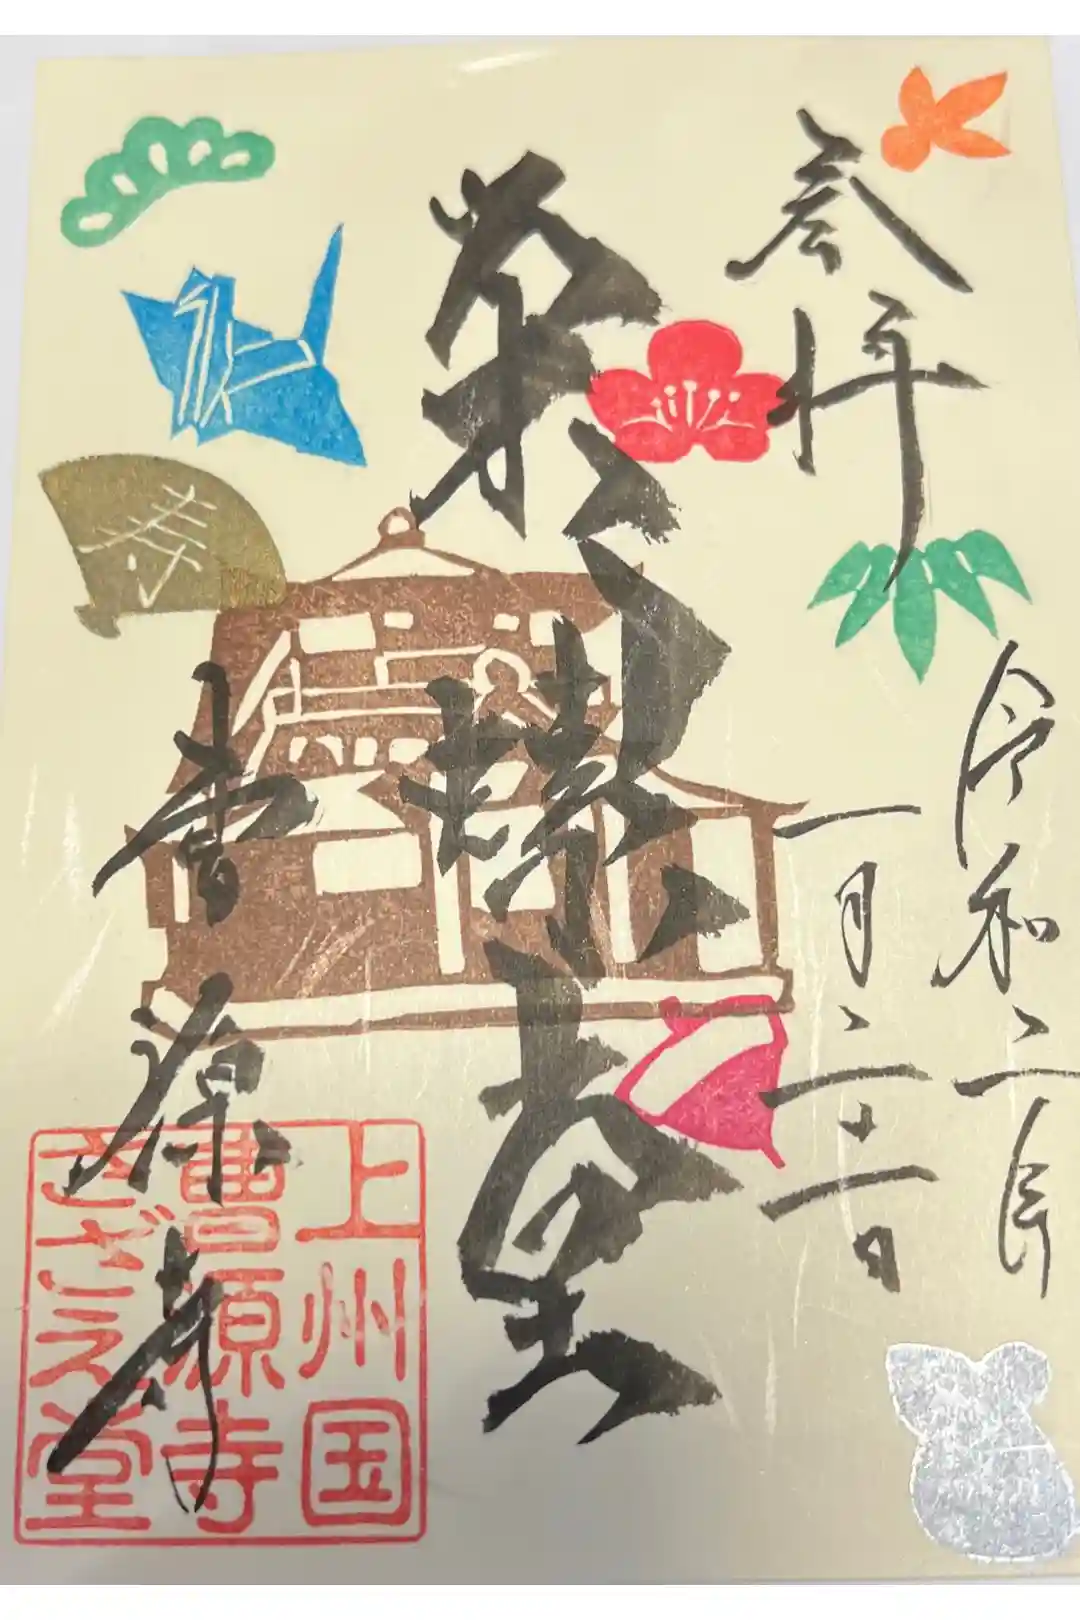 奉拝
令和二年
一月二十一日
栄螺堂
曹源寺
寿
上州国
曹源寺
さざえ堂